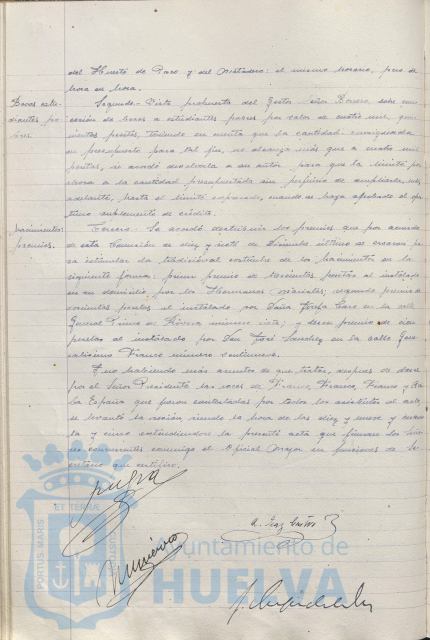 del Huerto de Paco y del Matadero: el mismo horario, pero de
hora en hora.
Becas estu-
diantes po-
bres.
Segundo - Vista propuesta del Gestor Señor Borrero, sobre con-
cesión de becas a estudiantes pobres por valor de cuatro mil qui-
nientas pesetas, teniendo en cuenta que la cantidad consignada
en presupuesto para tal fin, no alcanza más que a cuatro mil
pesetas, se acordó devolverla a su autor para que la limite por
ahora a la cantidad presupuestada sin perjuicio de ampliarla, más
adelante, hasta el límite expresado, cuando se haya efectuado el opor-
tuno suplemento de crédita.
Nacimientos:
premios.
Tercero - Se acordó destribuir los premios que por acuerdo
de esta Comisión de diez y siete de Diciembre último se crearon pa-
ra estimular la tradicional costumbre de los Nacimientos en la
siguiente forma: primer premio de trescientas pesetas al instalado
en su domicilio por los Hermanos; segundo premio
doscientas pesetas al instalado por Doña Josefa Caro en la calle
General Primo de Rivera número siete; y tercer premio de cien
pesetas al instalado por Don José Sanchez en la calle Gene-
ralísimo Franco número
Y no habiendo más asuntos de que tratar, después de darse
por el Señor Presidente las voces de Franco, Franco, Franco y Arri-
ba España que fueron contestadas por todos los asistentes al acto,
se levantó la sesión siendo la hora de las diez y nueve y cuaren-
ta y cinco extendiéndose la presente acta que firman los Seño-
res concurrentes conmigo el Oficial Mayor en funciones de Se-
cretario que certifico.
PORTUS MARIS
ET TERRAE
CUSTODIA
Ayuntamiento de
HUELVA